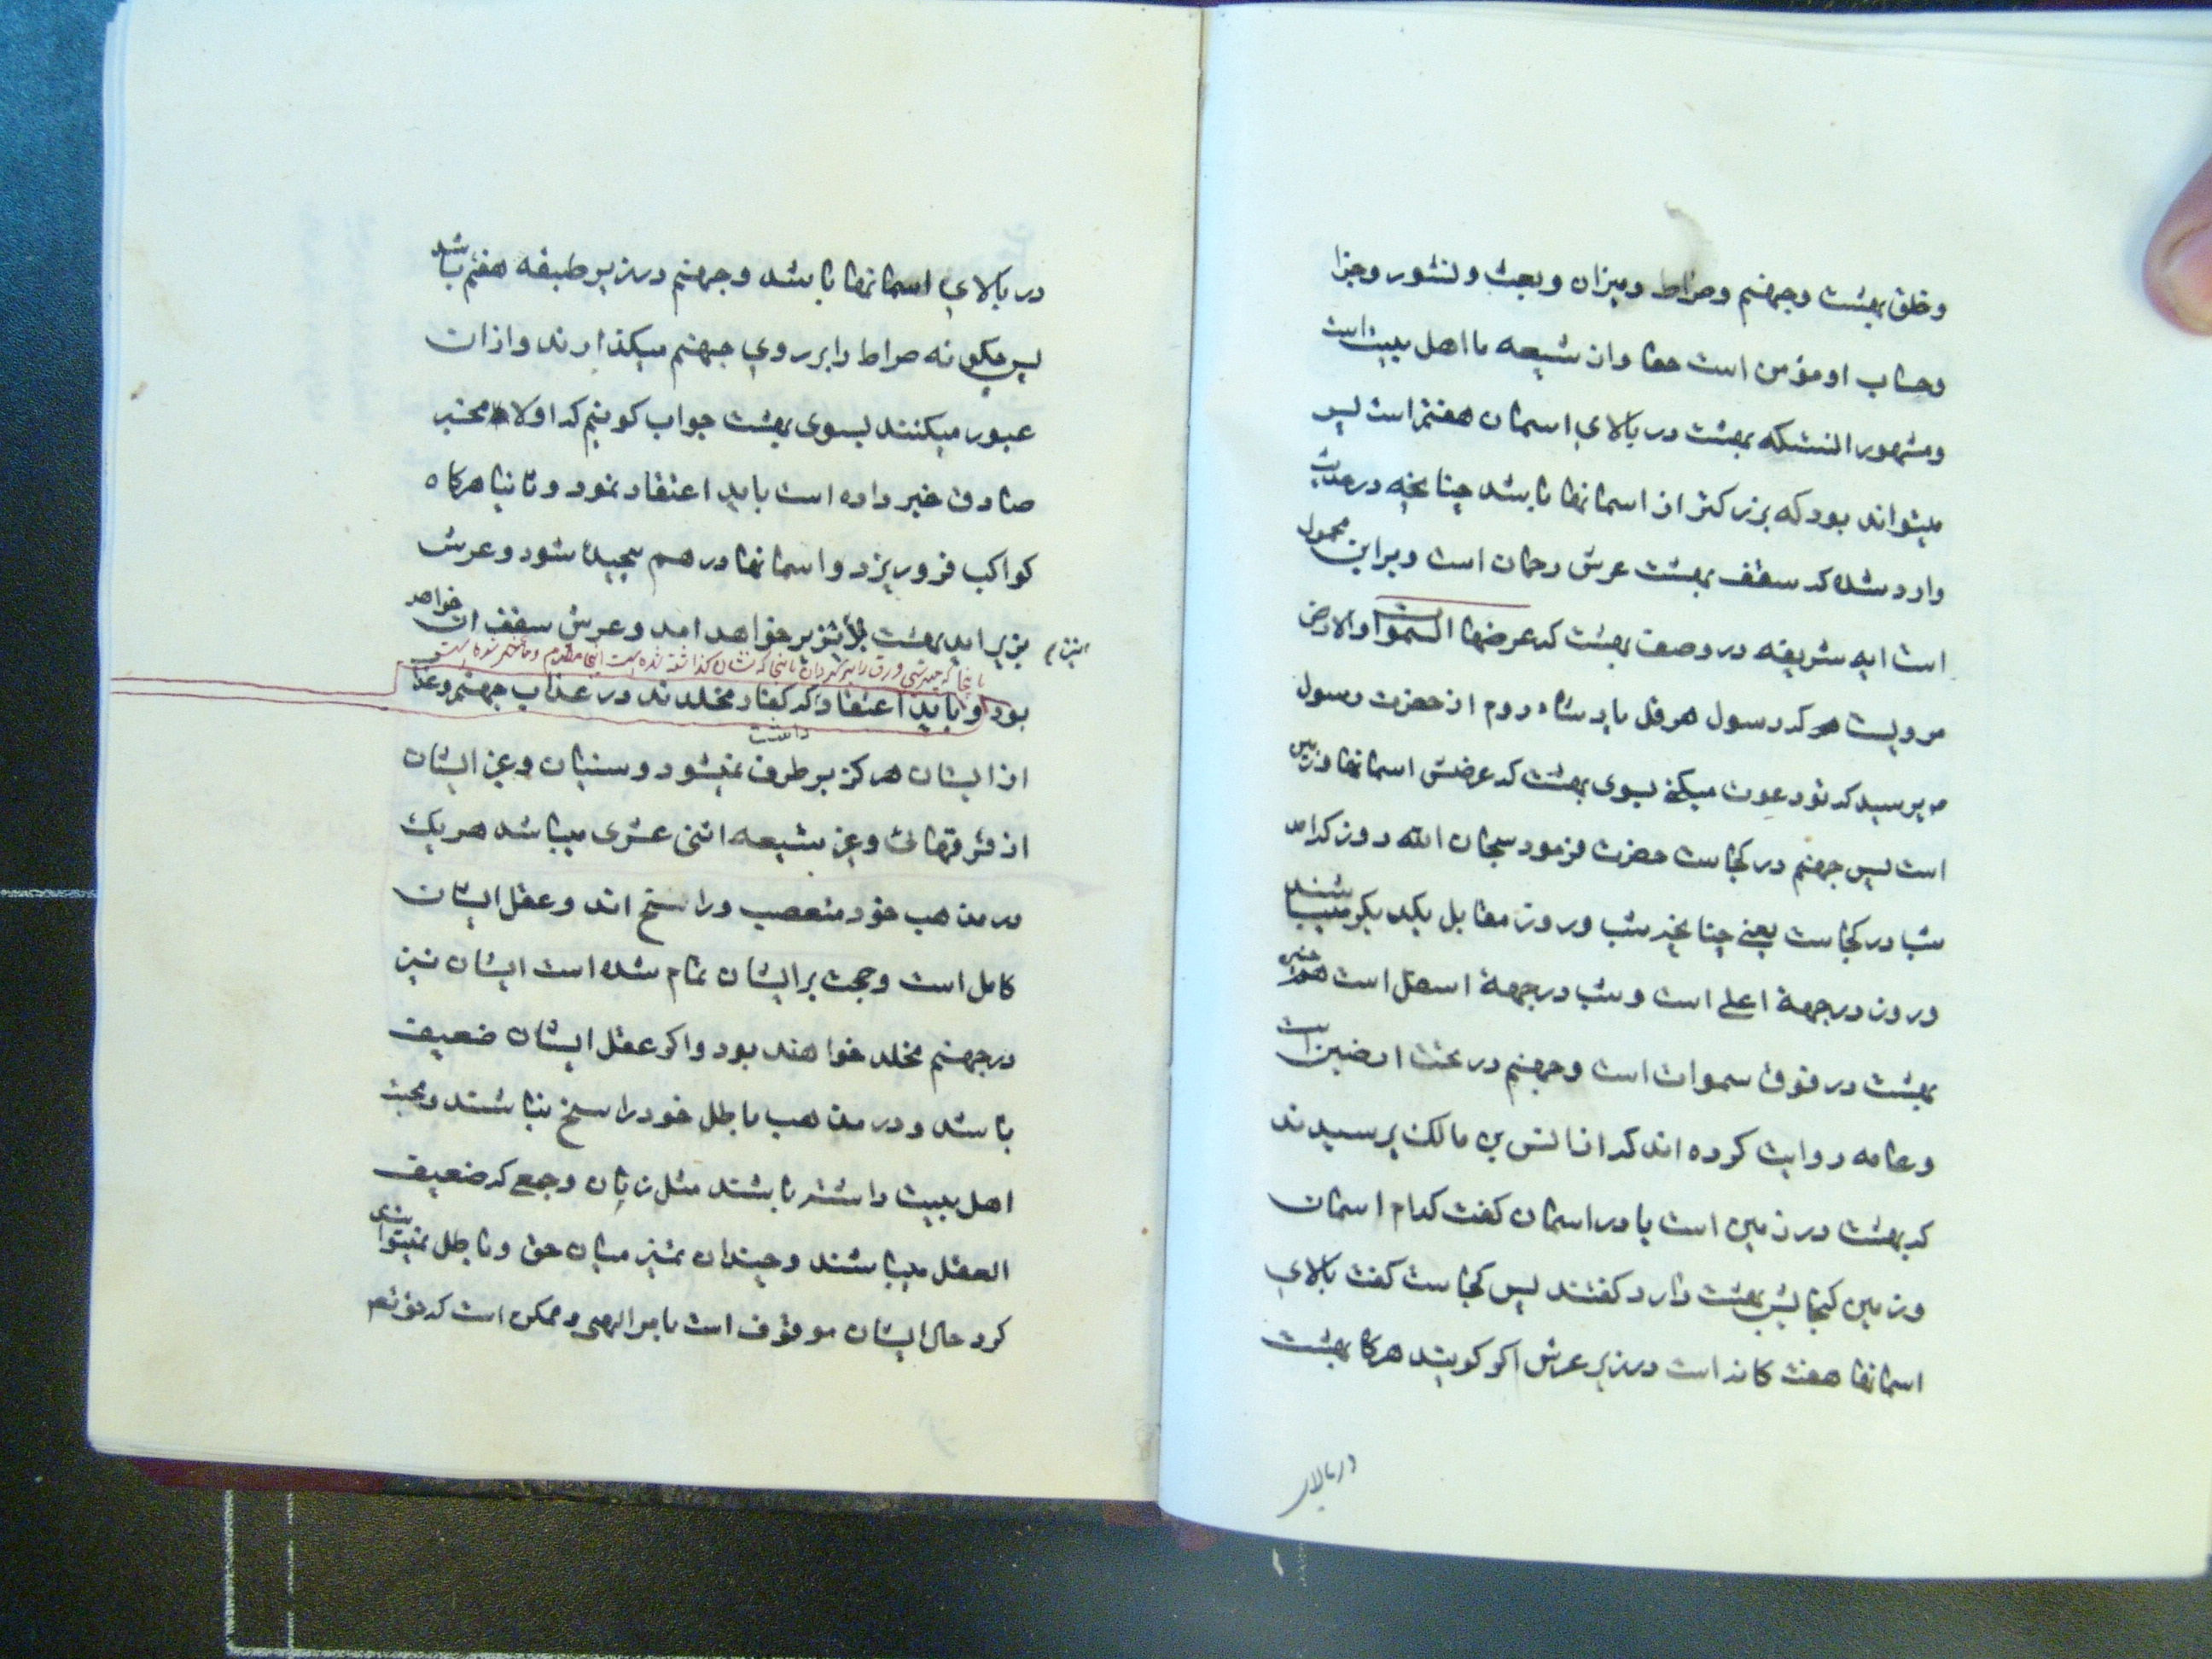 وخلق بهشت وجهنم وصراط وميزان وبعث ونشور وجزا
وحساب او مؤمن است حقا واز شیعه ما اهل بیت است
ومشهور انستکه بهشت در بالای اسمان هفتم است پس
میتواند بود که بزرکتر از اسمانها باشد چنانچه در حدیث
وارد شده که سقف بهشت عرش رحمان است و براین محمول
است ایه شریفه در وصف بهشت که عرضها السموات والارض
مرویست که رسول هرقل پادشاه روم از حضرت رسول
ص پرسید که تو دعوت میکنی بسوی بهشت که عرضش اسمانها وزمین
است پس جهنم در کجاست حضرت فرمود سبحان الله روز کدام
شب در کجاست یعنی چنانچه شب وروز مقابل یکدیکر میباشند
وروز در جهة اعلی است وشب در جهة اسفل است همچنین
بهشت در فوق سموات است وجهنم در تحت ارضین است
وعامه روایت کرده اند که از انس بن مالک پرسیدند
که بهشت در زمین است یا در اسمان کفت کدام اسمان
وزمین کنجایش بهشت دارد کفتند پس کجاست کفت بالای
اسمانها هفت کانه است در زیر عرش اکر کویند هرکاه بهشت
در بالای
در بالای اسمانها باشد وجهنم در زیر طبقه هفتم باشد
پس چکونه صراط را بر روی جهنم میکذارند واز ان
عبور میکنند بسوی بهشت جواب کوئیم که اولا مخبر
صادق خبر داده است باید اعتقاد نمود وثانیا هرکاه
کواکب فرو ریزد واسمانها درهم پیچیده شود وعرش
بزیر اید بهشت نیز بزیر خواهد امد وعرش سقف ان خواهد
بود وباید اعتقاد داشت که کفار مخلدند در عذاب جهنم وعذاب
از ایشان هرکز برطرف نمیشود وسنیان وغیر ایشان
از فرقهائی وغیر شیعه اثنی عشری میباشد هریک
در مذهب خود متعصب وراسخ اند وعقل ایشان
کامل است وحجت بر ایشان تمام شده است ایشان نیز
در جهنم مخلد خواهند بود واکر عقل ایشان ضعیف
باشد ودر مذهب باطل خود راسخ نباشند ومحبت
اهل بیت داشته باشند مثل زنان وجمعی که ضعیف
العقل میباشند وچندان تمیز میان حق وباطل نمیتوانند
کرد حال ایشان موقوف است بامر الهی وممکن است که